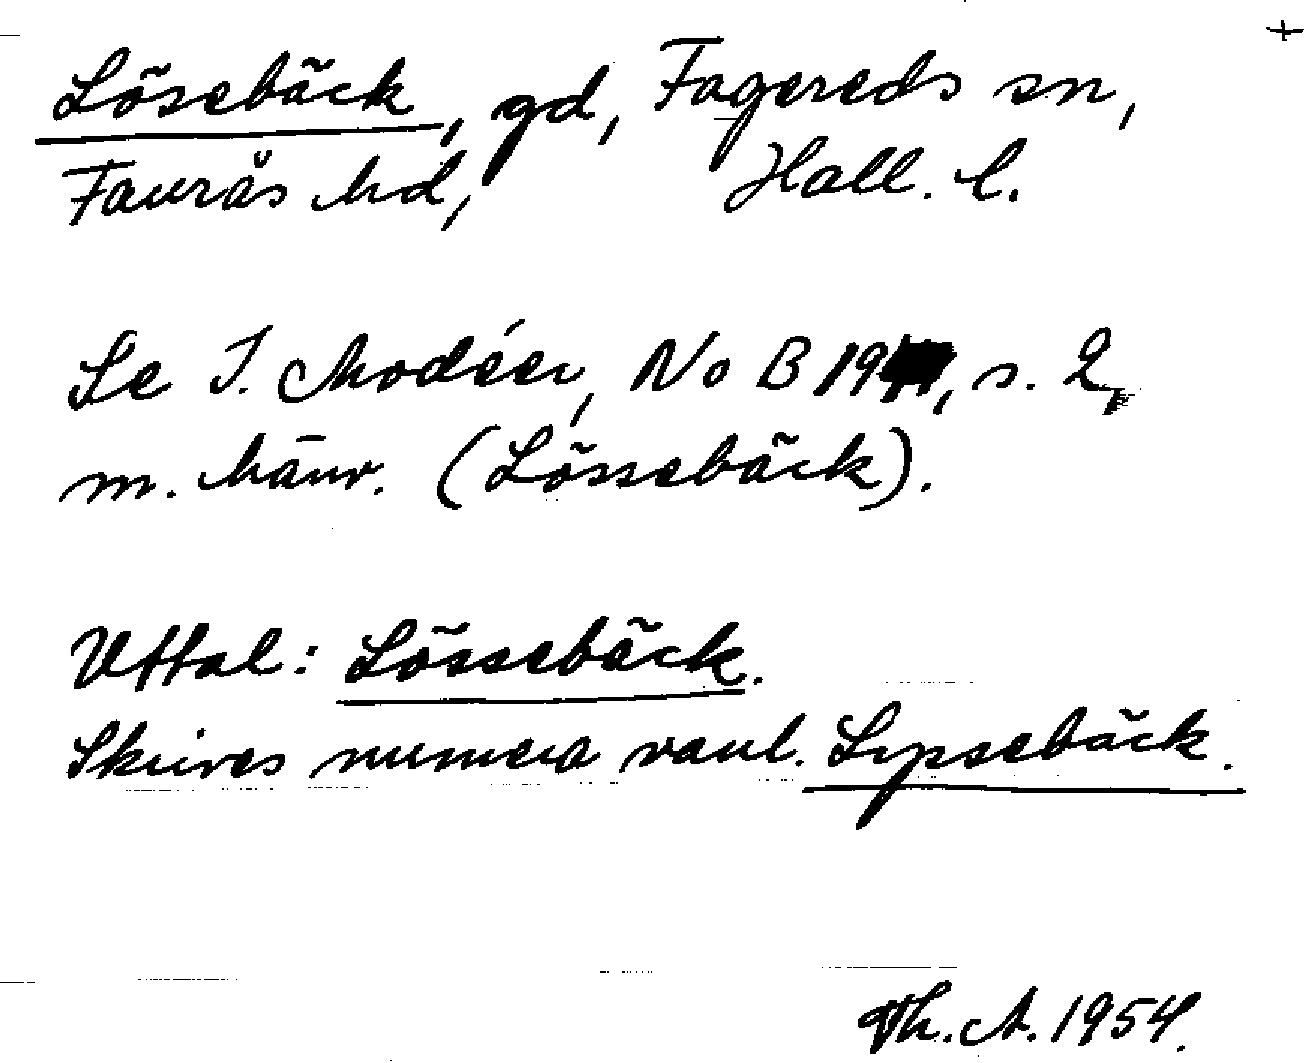 Lösebäck, gd, Fagereds sn,
Faurås hd, Hall. l.
Se I. Modéer, NoB 19, s. 2,
m. hänv. (Lössebäck).
Uttal: Lössebäck.
Skrives numera vanl. Lypsebäck.
Th. A. 1954.